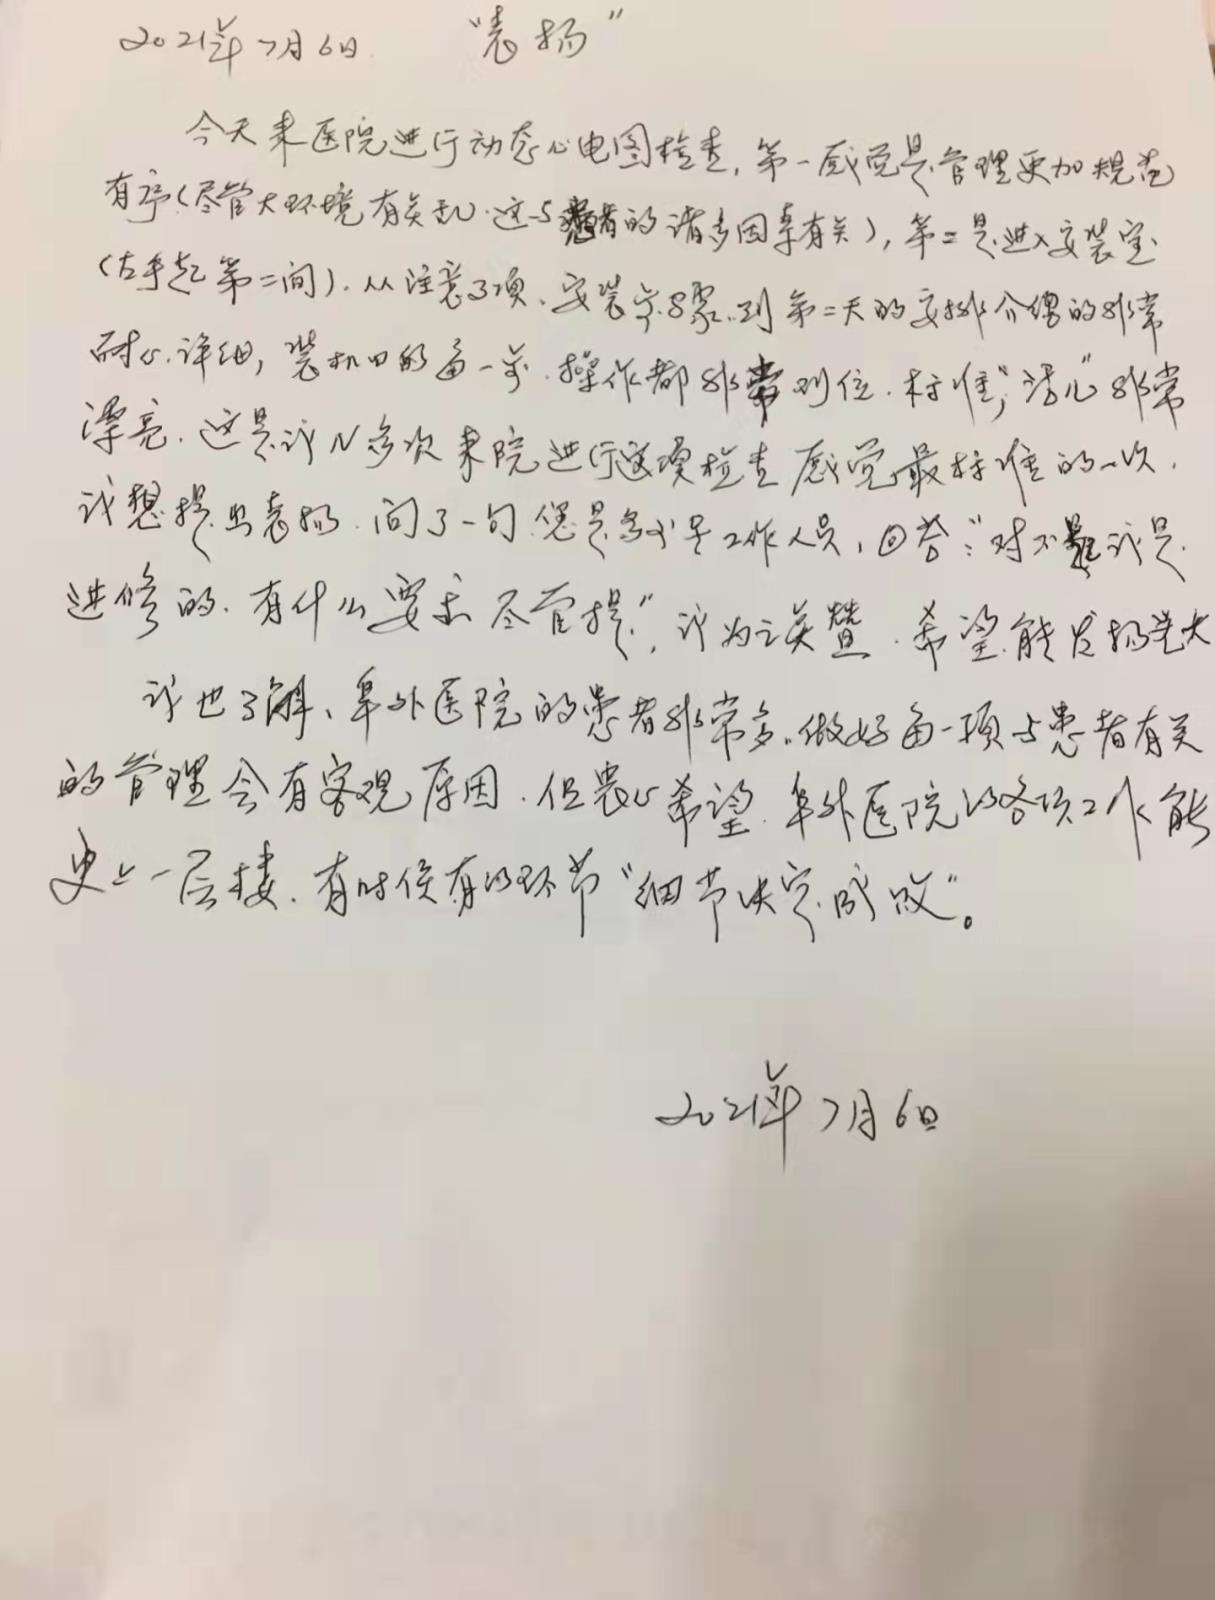 2021年7月6日 "表扬"
今天来医院进行动态心电图检查,第一感觉是管理更加规范
有序(尽管大环境有关乱.这与患者的诸多因素有关),第二是进入安装室
(右手起第二间).从注意事项、安装步骤.到第二天的安排介绍的非常
耐心.详细,装机的每一步.操作都非常到位.标准,"活儿"非常
漂亮.这是我N多次来院进行这项检查感觉最标准的一次.
我想提出表扬.问了一句您是多少号工作人员,回答:"对不起我是
进修的.有什么要求尽管提.",我为之点赞.希望能发扬光大
我也了解、阜外医院的患者非常多.做好每一项与患者有关
的管理会有客观原因.但衷心希望.阜外医院的各项工作能
更上一层楼.有时候有的环节"细节决定成败"。
2021年7月6日